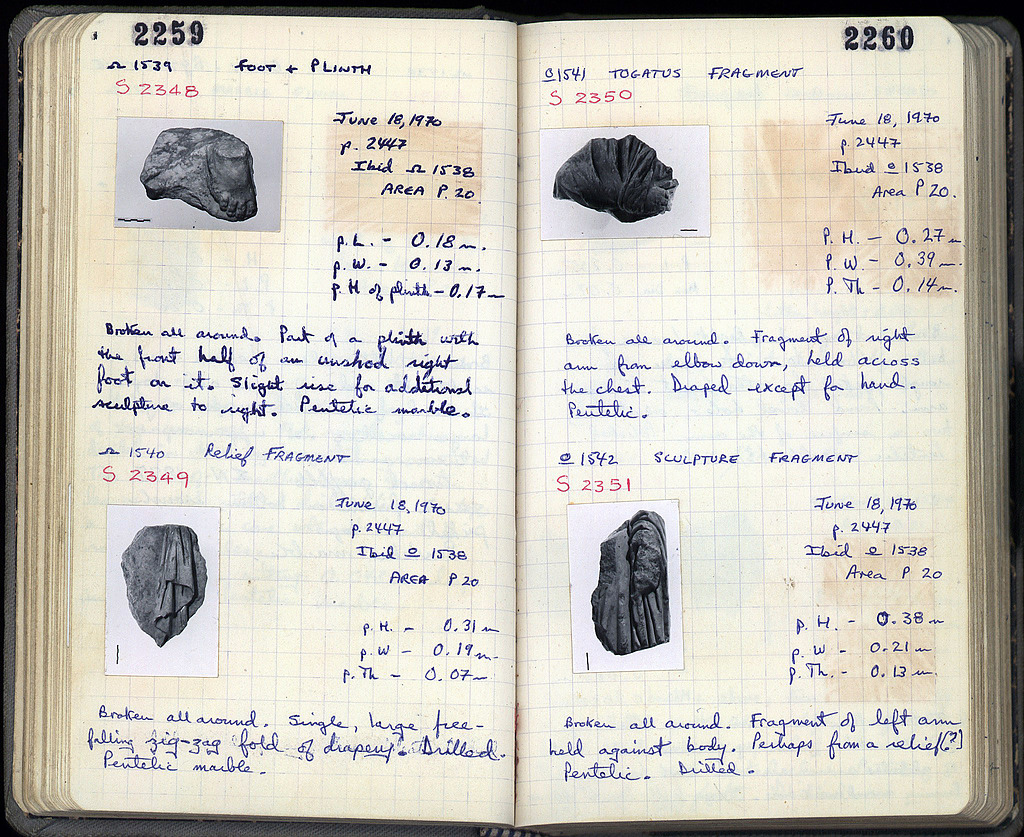 2259
Ω 1539 FOOT + PLINTH
S 2348
JUNE 18, 1970
p. 2447
Ibid Ω 1538
AREA P 20.
p. L. - 0.18 m.
p. W. - 0.13 m.
p. H of plinth - 0.17 m
Broken all around. Part of a plinth with
the front half of an unshod right
foot on it. Slight rise for additional
sculpture to right. Pentelic marble.
Ω 1540 Relief FRAGMENT
S 2349
June 18, 1970
p. 2447
Ibid Ω 1538
AREA P 20
p. H. - 0.31 m
p. W - 0.19 m.
p. Th - 0.07 m
Broken all around. Single, large free-
falling zig-zag fold of drapery. Drilled.
Pentelic marble.
2260
Ω 1541 TOGATUS FRAGMENT
S 2350
June 18, 1970
p. 2447
Ibid Ω 1538
Area P 20.
P. H. - 0.27 m
P. W. - 0.39 m.
P. Th - 0.14 m.
Broken all around. Fragment of right
arm from elbow down, held across
the chest. Draped except for hand.
Pentelic.
Ω 1542 SCULPTURE FRAGMENT
S 2351
June 18, 1970
p. 2447
Ibid Ω 1538
Area P 20
p. H. - 0.38 m
p. W - 0.21 m
p. Th. - 0.13 m.
Broken all around. Fragment of left arm
held against body. Perhaps from a relief[?]
Pentelic. Drilled.